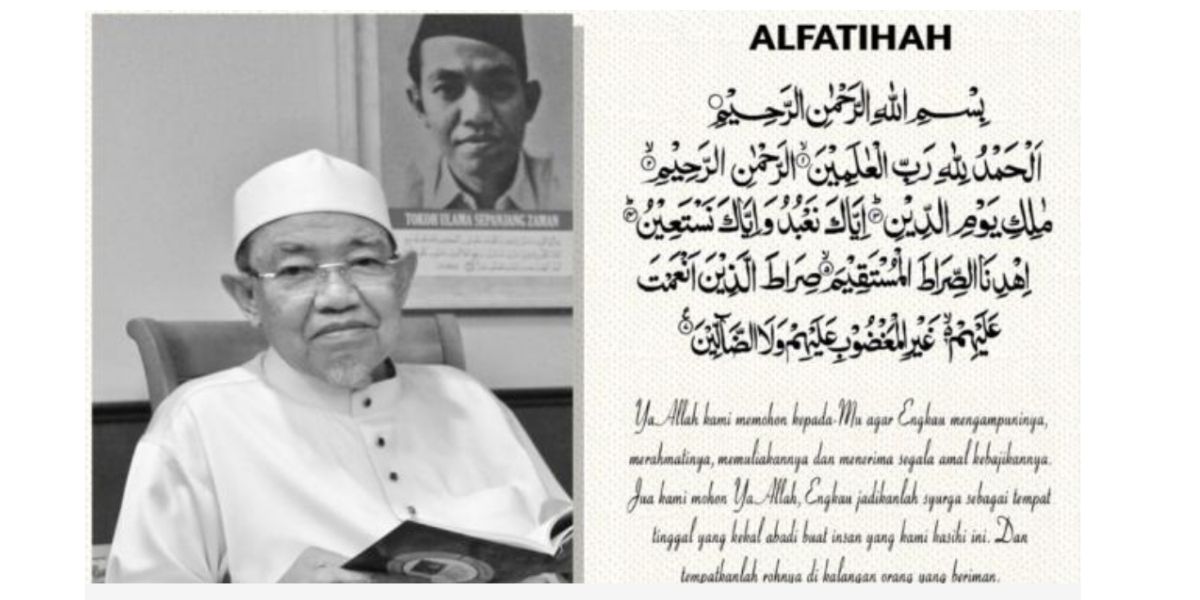 TOKOH ULAMA SEPANJANG ZAMAN
ALFATIHAH
بِسْمِ اللّٰهِ الرَّحْمٰنِ الرَّحِيْمِ
اَلْحَمْدُ لِلّٰهِ رَبِّ الْعٰلَمِيْنَ ۝١ الرَّحْمٰنِ الرَّحِيْمِ ۝٢
مٰلِكِ يَوْمِ الدِّيْنِ ۝٣ اِيَّاكَ نَعْبُدُ وَاِيَّاكَ نَسْتَعِيْنُ ۝٤
اِهْدِنَا الصِّرَاطَ الْمُسْتَقِيْمَ ۝٥ صِرَاطَ الَّذِيْنَ اَنْعَمْتَ
عَلَيْهِمْ ۝٦ غَيْرِ الْمَغْضُوْبِ عَلَيْهِمْ وَلَا الضَّآلِّيْنَ ۝٧
Ya Allah kami memohon kepada-Mu agar Engkau mengampuninya,
merahmatinya, memuliakannya dan menerima segala amal kebajikannya.
Jua kami mohon Ya Allah, Engkau jadikanlah syurga sebagai tempat
tinggal yang kekal abadi buat insan yang kami kasihi ini. Dan
tempatkanlah rohnya di kalangan orang yang beriman.